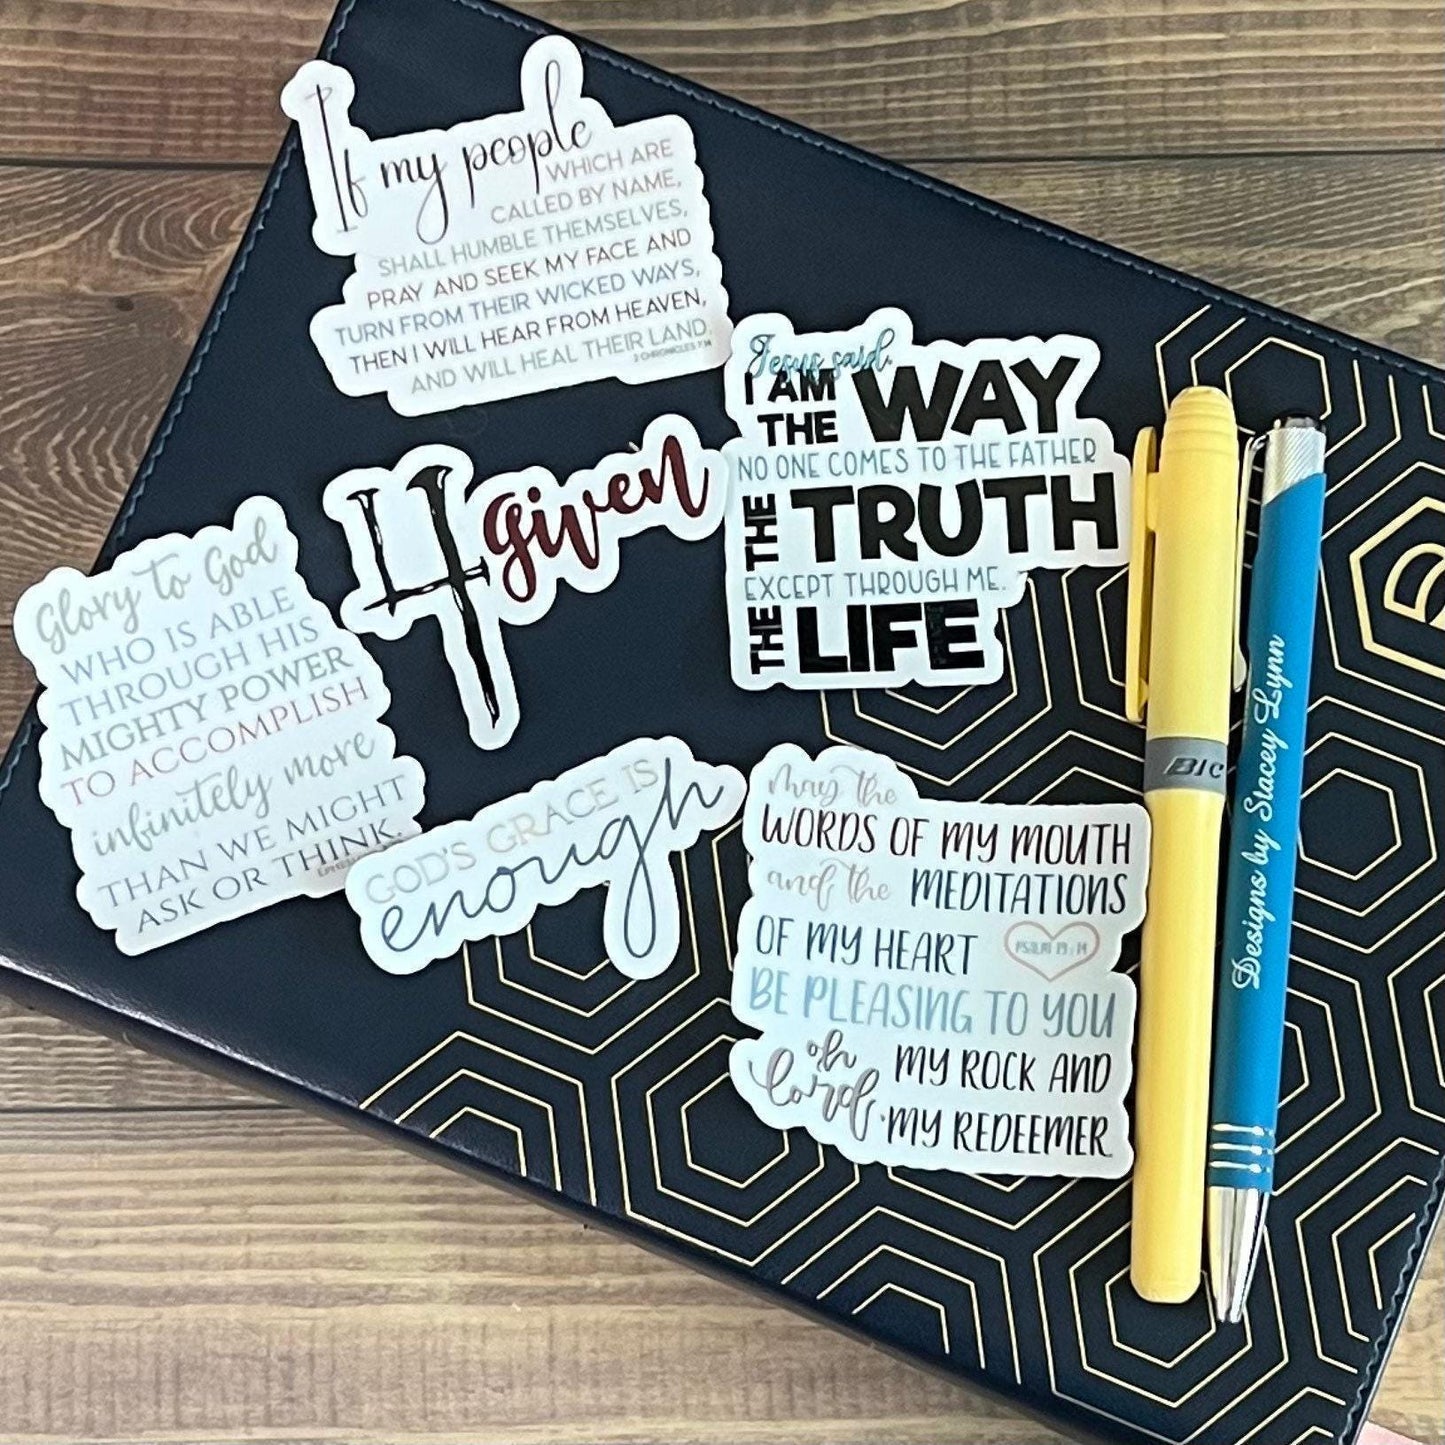 If my people
WHICH ARE
CALLED BY NAME,
SHALL HUMBLE THEMSELVES,
PRAY AND SEEK MY FACE AND
TURN FROM THEIR WICKED WAYS,
THEN I WILL HEAR FROM HEAVEN,
AND WILL HEAL THEIR LAND.
2 CHRONICLES 7:14
Jesus said,
I AM
THE WAY
NO ONE COMES TO THE FATHER
THE TRUTH
EXCEPT THROUGH ME.
THE LIFE
4given
Glory to God
WHO IS ABLE
THROUGH HIS
MIGHTY POWER
TO ACCOMPLISH
infinitely more
THAN WE MIGHT
ASK OR THINK.
GOD'S GRACE IS
enough
may the
WORDS OF MY MOUTH
and the MEDITATIONS
OF MY HEART
PSALM 19:14
BE PLEASING TO YOU
oh lord, MY ROCK AND
MY REDEEMER
BIC
Designs by Stacey Lynn